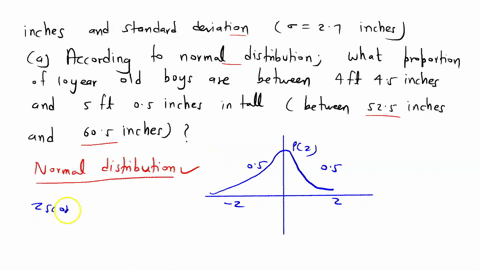 inches and standard deviation (σ = 2.7 inches)
(a) According to normal distribution; what proportion
of 10year old boys are between 4ft 4.5 inches
and 5 ft 0.5 inches in tall ( between 52.5 inches
and 60.5 inches) ?
Normal distribution ✓
P(Z)
0.5 0.5
-2 2